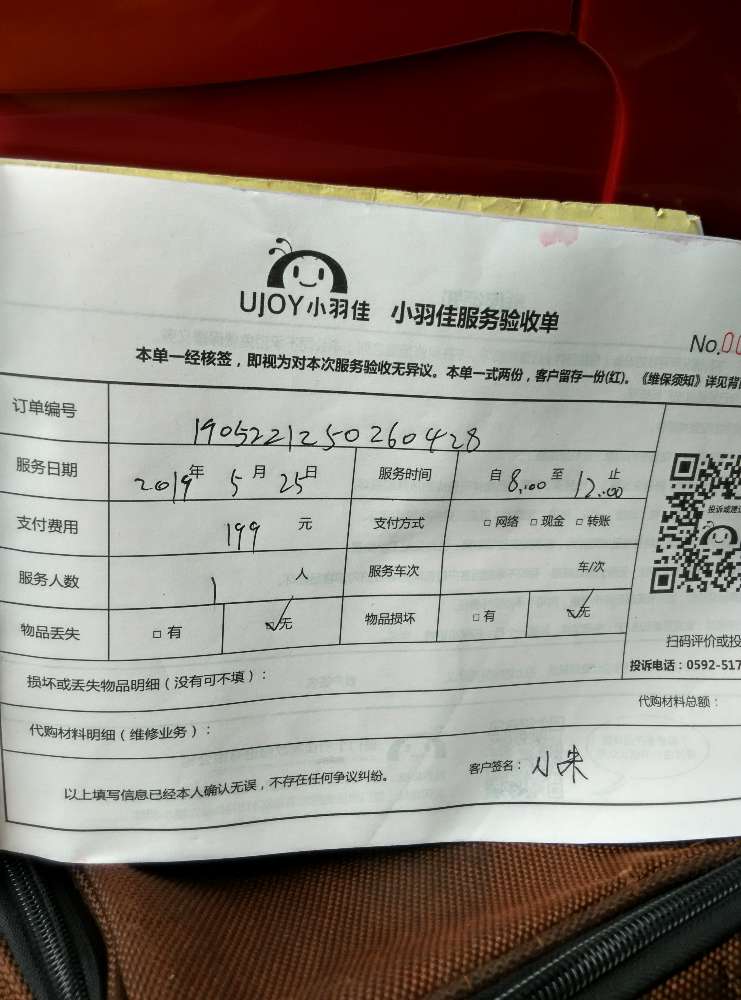 UJOY小羽佳 小羽佳服务验收单
No.00
本单一经核签，即视为对本次服务验收无异议。本单一式两份，客户留存一份(红)。《维保须知》详见背
订单编号 1905221250260428
服务日期 2019年 5月 25日 服务时间 自 8:00 至 12:00 止
投诉或建
支付费用 199 元 支付方式 □ 网络 □ 现金 □ 转账
服务人数 1 人 服务车次 车/次
物品丢失 □ 有 ☑无 物品损坏 □ 有 ☑无
扫码评价或投
投诉电话：0592-517
损坏或丢失物品明细（没有可不填）：
代购材料总额：
代购材料明细（维修业务）：
以上填写信息已经本人确认无误，不存在任何争议纠纷。 客户签名：小朱